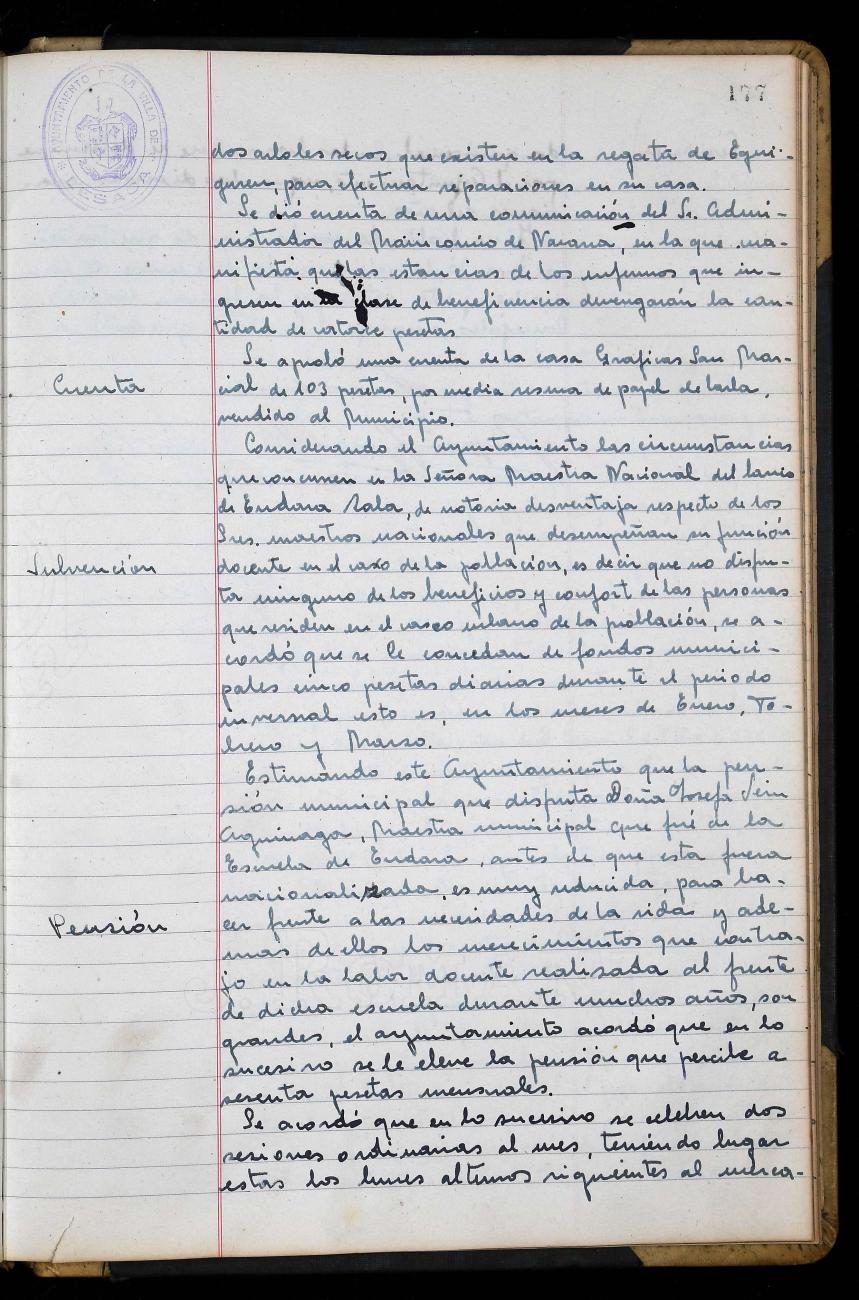 177
AYUNTAMIENTO DE LA VILLA DE
LESACA
dos arboles secos que existen en la regata de Egui-
guren, para efectuar reparaciones en su casa.
Se dió cuenta de una comunicación del Sr. Admi-
nistrador del Manicomio de Navarra, en la que ma-
nifiesta que las estancias de los enfermos que in-
gresen en la clase de beneficencia devengarán la can-
tidad de catorce pesetas
Se aprobó una cuenta de la casa Graficas San Mar-
Cuenta
cial de 103 pesetas, por media resma de papel de barba,
vendido al Municipio.
Considerando el Ayuntamiento las circunstancias
que concurren en la Señora Maestra Nacional del barrio
de Endara Zala, de notoria desventaja respecto de los
Sres. maestros nacionales que desempeñan su función
Subvención
docente en el caxo de la poblacion, es decir que no disfru-
ta ninguno de los beneficios y confort de las personas
que residen en el casco urbano de la población, se a-
cordó que se le concedan de fondos munici-
pales cinco pesetas diarias durante el periodo
invernal esto es, en los meses de Enero, Fe-
brero y Marzo.
Estimando este Ayuntamiento que la pen-
sión municipal que disfruta Doña Josefa Sein
Aguinaga, Maestra municipal que fué de la
Escuela de Endara, antes de que esta fuera
nacionalizada, es muy reducida, para ha-
Pensión
cer frente a las necesidades de la vida y ade-
mas de ellos los merecimientos que contra-
jo en la labor docente realizada al frente
de dicha escuela durante muchos años, son
grandes, el ayuntamiento acordó que en lo
sucesivo se le eleve la pensión que percibe a
sesenta pesetas mensuales.
Se acordó que en lo sucesivo se celebren dos
sesiones ordinarias al mes, teniendo lugar
estas los lunes alternos siguientes al merca-